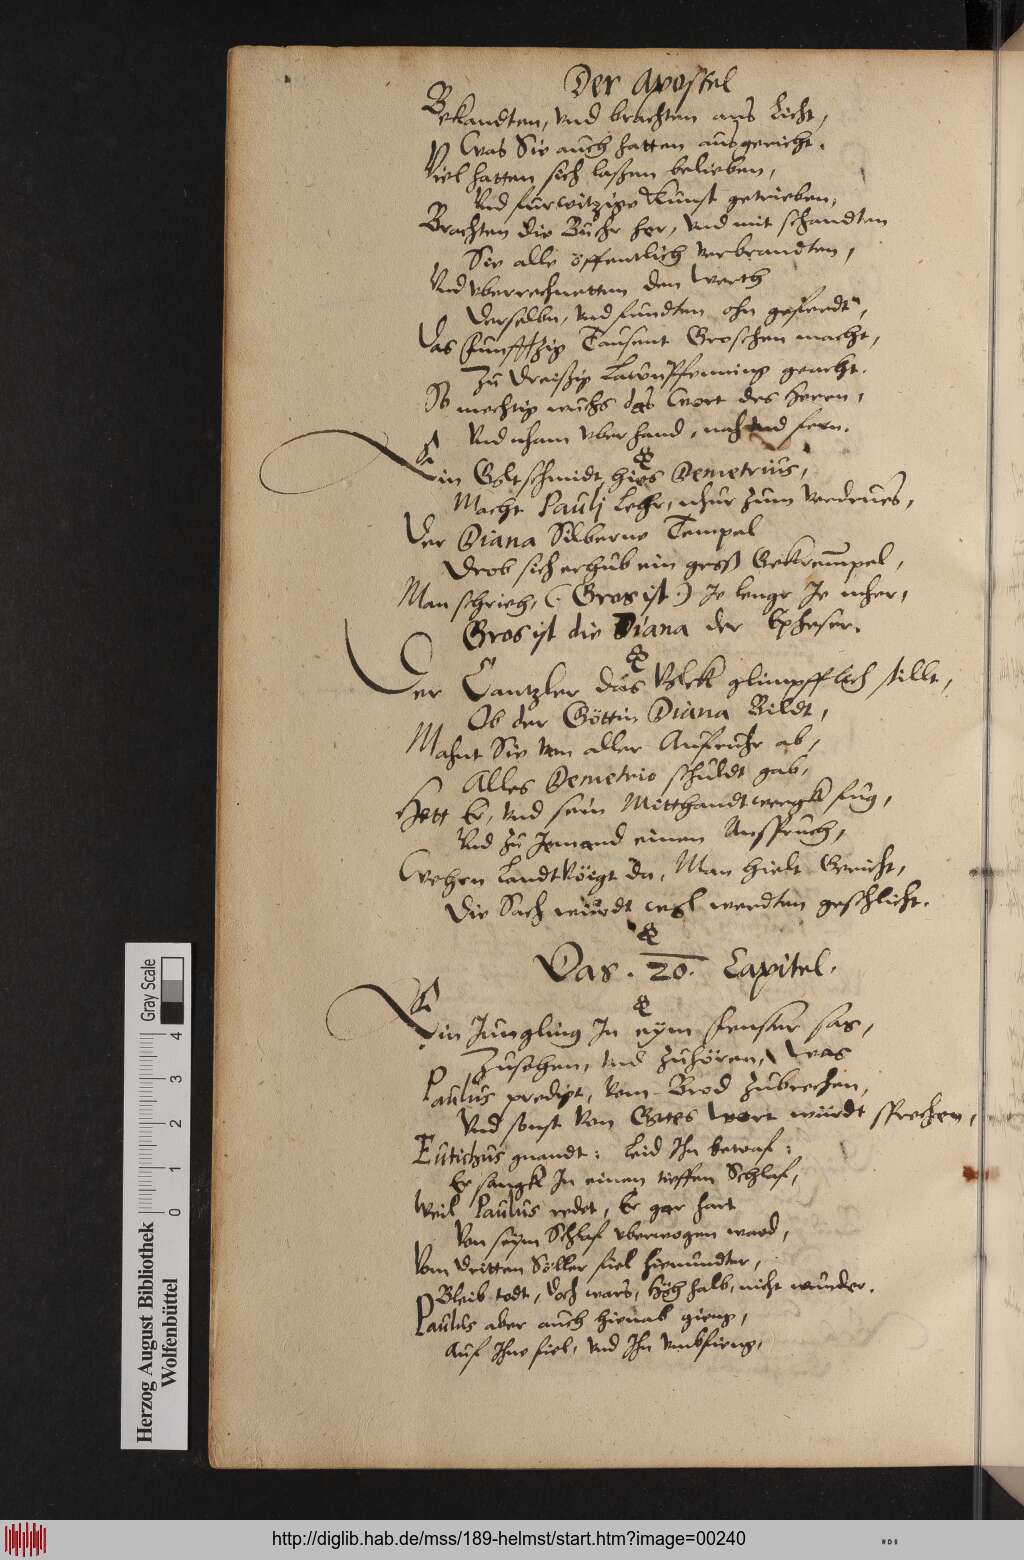 Der Apostel
Bekandten, Vnd brachten ans Licht,
Was Sie auch hatten ausgericht.
Viel hatten sich laßen belieben,
Vnd furwitzige Kunst getrieben,
Brachten die Bücher her, Vnd mit schandten
Sie alle öffentlich verbrandten,
Vnd vberrechnetten den Werth
Derselben, Vnd fundten ohn geferdt,
Das funfftzig Tausent Groschen macht,
Zu dreißig Pfenning geacht.
So mechtig wuchs das Wort des Herrn,
Vnd nham vberhand, nah vnd fern.
Ein Goltschmidt hies Demetrius,
Macht Paulj Lehr, nhur zum verdrues,
Der Diana Silberne Tempel
Drob sich erhub ein groß Gekrempel,
Man schrieh, (: Gros ist :) Je lenger Je mher,
Gros ist die Diana der Epheser.
Der Cantzler das Volck glimpfflich stillt,
Ob der Göttin Diana Bildt,
Mahnt Sie von aller Aufruhr ab,
Alles Demetrio schuldt gab,
Hett Er, Vnd sein Mitthandtwergk fug,
Vnd zu Jemand einen Anspruch,
Wehren Landtvöigt da, Man hielt Gericht,
Die Sach würdt wol werdten geschlicht.
Das . 20. Capitel.
Ein Jungling In eym fenster sas,
Zusehen, vnd zuhören, Was
Paulus predigt, vom Brod zubrechen,
Vnd sonst von Gotes Wort würdt sprechen,
Eutichus gnandt: leid Ihn betraf:
Er sangk In einen tieffen Schlaf,
Weil Paulus redet, Er gar hart
Von seym Schlaf vberwogen ward,
Vom dritten Söller fiel hienundter,
Bleib todt, doch wars, Höh halb, nicht wunder.
Paulus aber auch hienab gieng,
Auf Ihne fiel, vnd Ihn vmbfieng,
Gray Scale
0 1 2 3 4
Herzog August Bibliothek
Wolfenbüttel
http://diglib.hab.de/mss/189-helmst/start.htm?image=00240